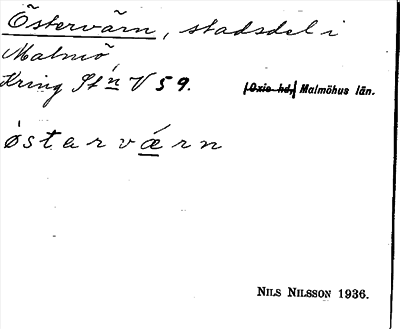 Östervärn, stadsdel i
Malmö,
Kring St n V 59.
Oxie hd, Malmöhus län.
østarværn
NILS NILSSON 1936.